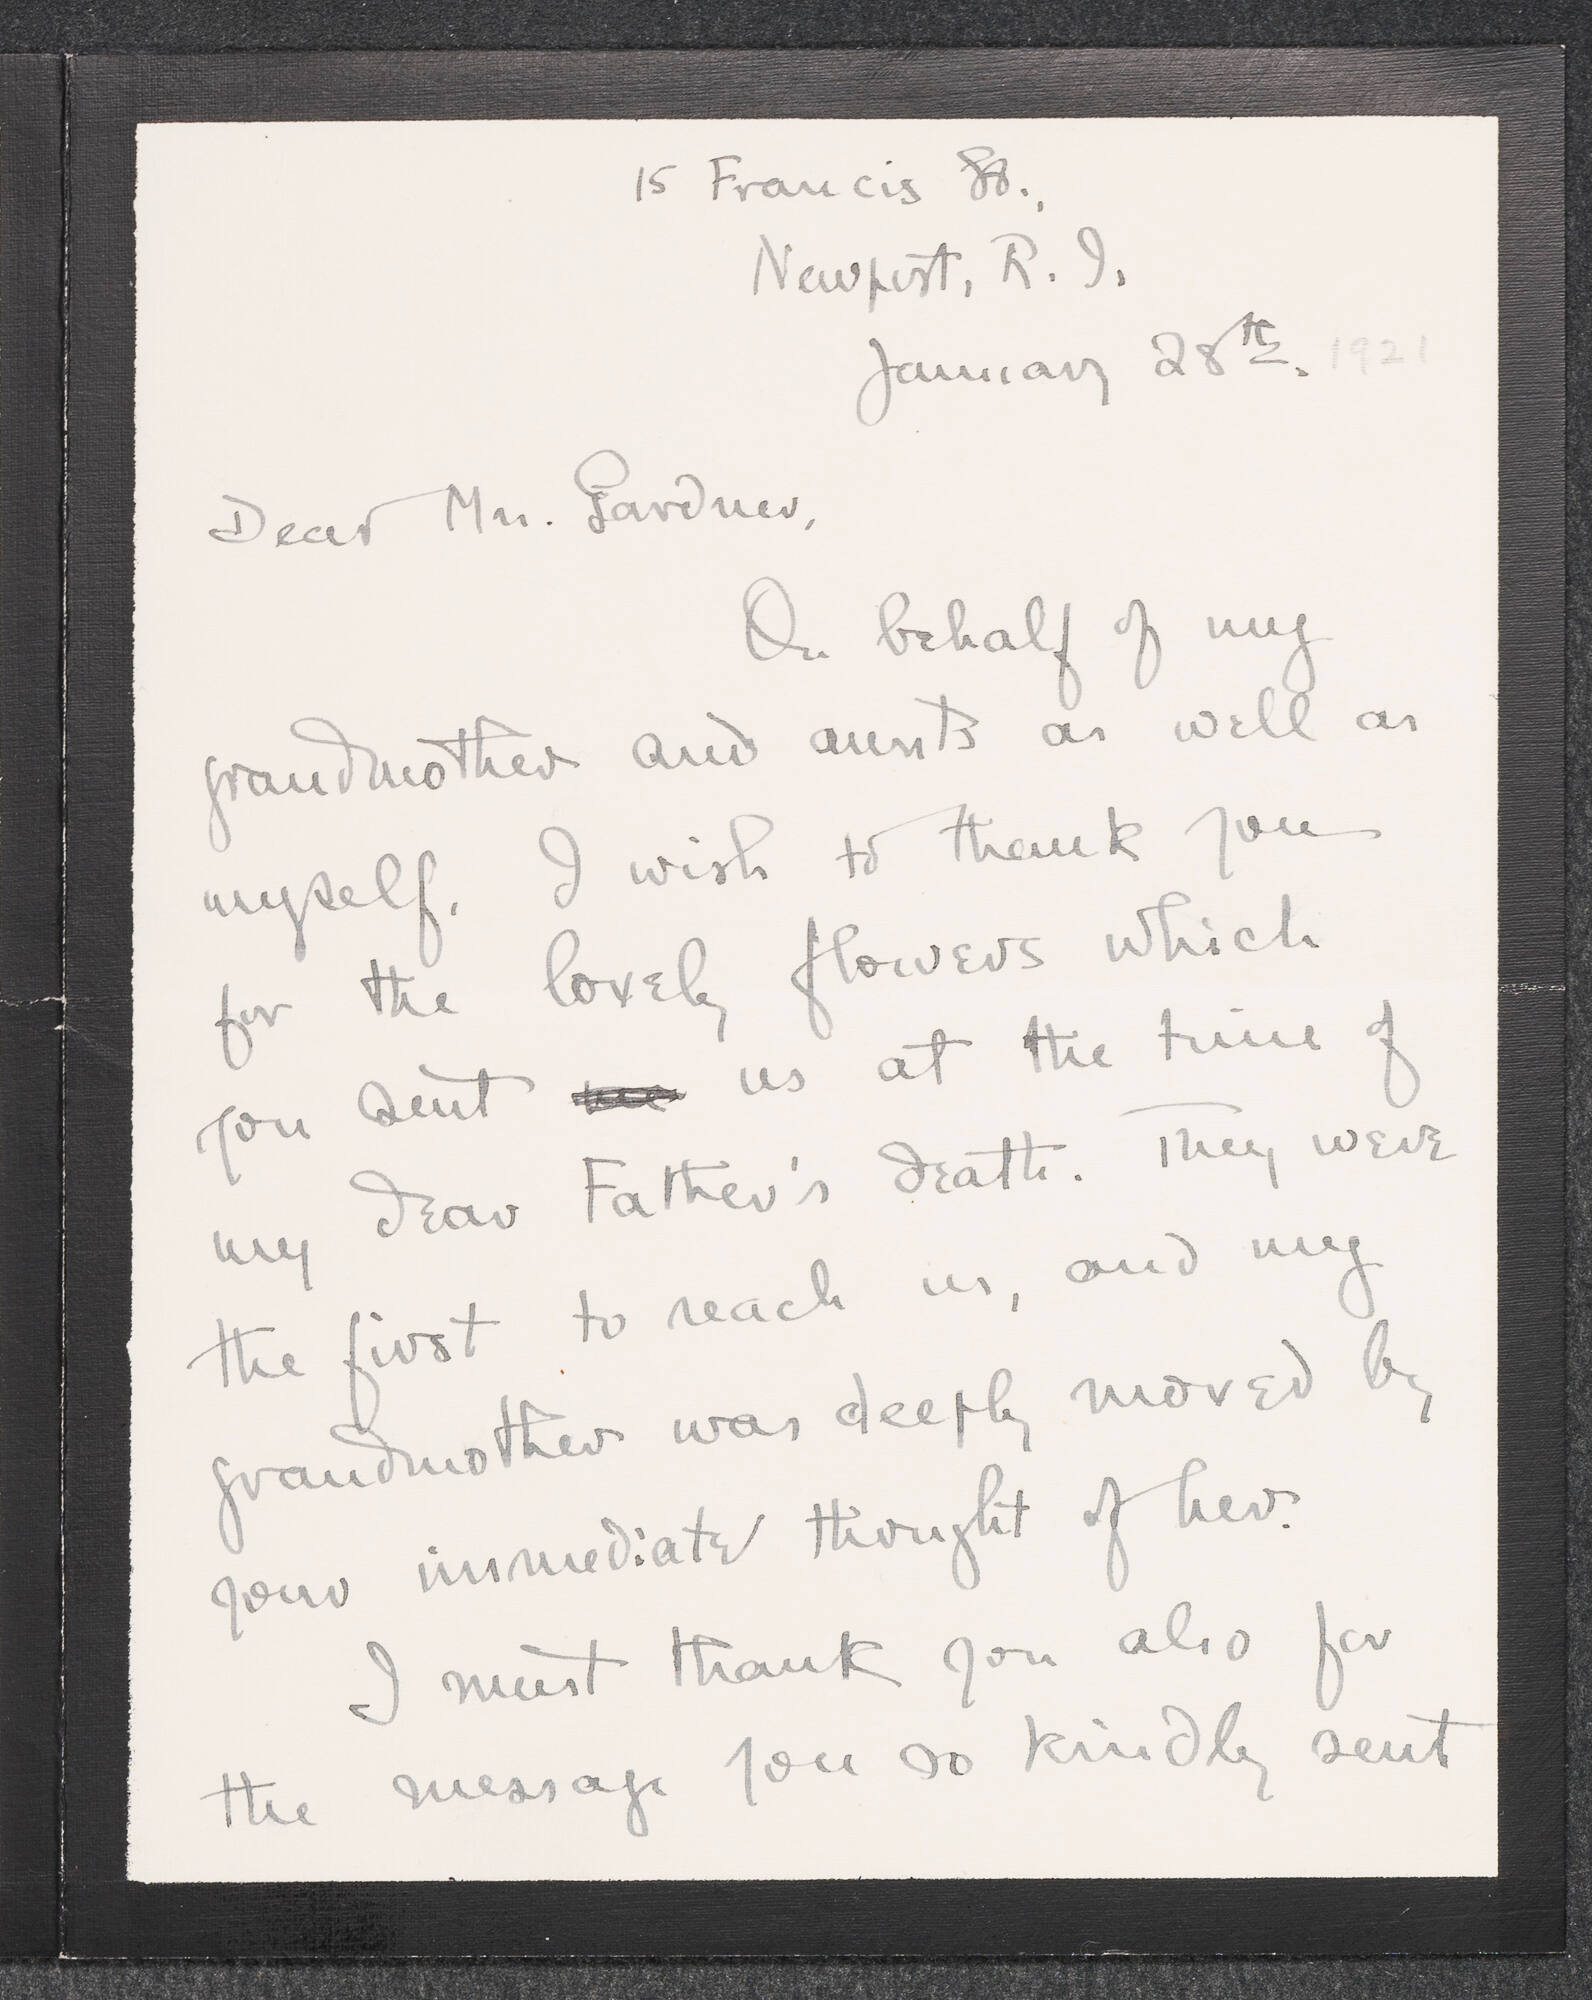 15 Francis St.,
Newport, R. I.
January 28th. 1921
Dear Mrs. Gardner,
On behalf of my
grandmother and aunts as well as
myself, I wish to thank you
for the lovely flowers which
you sent us at the time of
my dear Father's death. They were
the first to reach us, and my
grandmother was deeply moved by
your immediate thought of her.
I must thank you also for
the message you so kindly sent